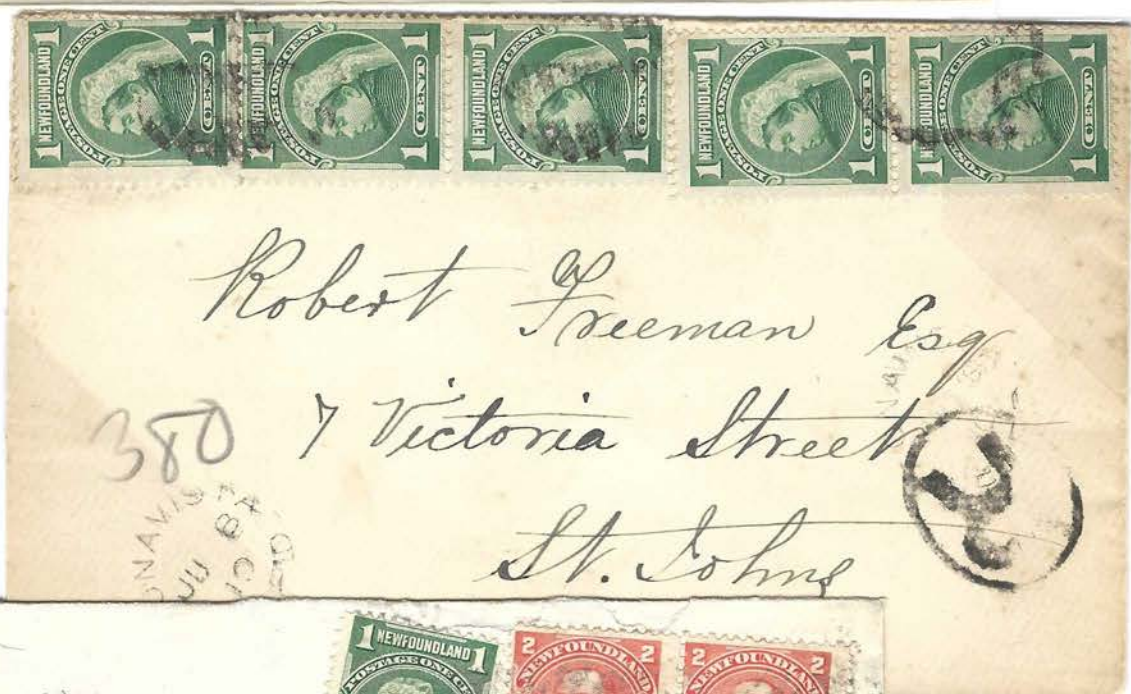 1 NEWFOUNDLAND 1
POSTAGE ONE CENT
1 CENT 1
NEWFOUNDLAND 1
POSTAGE ONE CENT
1 CENT 1
1 NEWFOUNDLAND 1
POSTAGE ONE CENT
1 CENT 1
1 NEWFOUNDLAND 1
POSTAGE ONE CENT
1 CENT 1
1 NEWFOUNDLAND 1
POSTAGE ONE CENT
1 CENT 1
Robert Freeman Esq
7 Victoria Street
St. Johns
380
JU 8
10
R
1 NEWFOUNDLAND 1
POSTAGE ONE CE
2 NEWFOUNDLAND 2
2 NEWFOUNDLAND 2